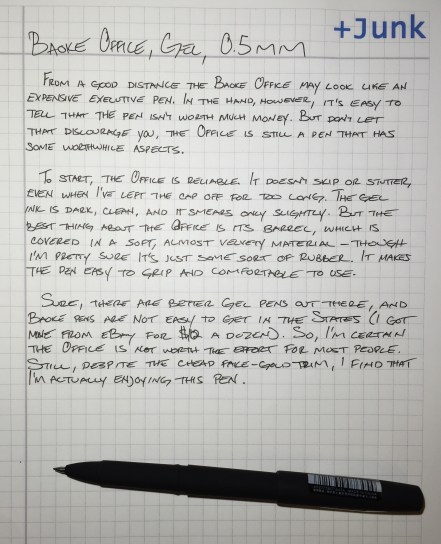 +Junk
Baoke Office, Gel, 0.5mm
From a good distance the Baoke Office may look like an
expensive executive pen. In the hand, however, it's easy to
tell that the pen isn't worth much money. But don't let
that discourage you, the Office is still a pen that has
some worthwhile aspects.
To start, the Office is reliable. It doesn't skip or stutter,
even when I've left the cap off for too long. The gel
ink is dark, clean, and it smears only slightly. But the
best thing about the Office is its barrel, which is
covered in a soft, almost velvety material – though
I'm pretty sure it's just some sort of rubber. It makes
the pen easy to grip and comfortable to use.
Sure, there are better gel pens out there, and
Baoke pens are not easy to get in the States (I got
mine from eBay for $12 a dozen). So, I'm certain
the Office is not worth the effort for most people.
Still, despite the cheap fake-gold trim, I find that
I'm actually enjoying this pen.